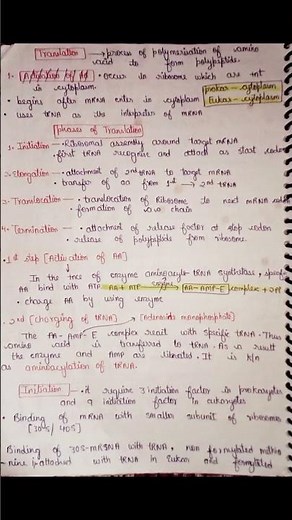 Translation → process of polymerisation of amino
acid to form polypeptide.
1- Activation by AA • Occur in ribosome which are
in cytoplasm
prokar - cytoplasm
Eukar - cytoplasm
• begins after mRNA enter in cytoplasm
• uses tRNA as the interpreter of mRNA
phases of Translation
1. Initiation - Ribosomal assembly around target mRNA
• first tRNA recognise and attach as start codon
2. Elongation - attachment of 2nd tRNA to target mRNA
• transfer of aa from 1st → 2nd tRNA
3. Translocation - • translocation of Ribosome to next mRNA codon
• formation of chain
4. Termination - • attachment of release factor at stop codon
• release of polypeptide from ribosome.
• 1st step [Activation of AA]
In the of enzyme aminoacyl-tRNA synthetase, specific
AA bind with ATP AA + ATP enzyme → AA-AMP-E complex +
• charge AA by using enzyme
• 2nd [charging of tRNA] → [Adenosine monophosphate]
The AA-AMP-E complex react with specific tRNA. Thus
amino acid is transferred to tRNA. As a result
the enzyme and AMP are librated. It is k/n
as aminoacylation of tRNA.
Initiation - • it require 3 initiation factor in prokaryotes
and 9 initiation factor in eukaryotes
• Binding of mRNA with smaller subunit of ribosomes
[30S/40S]
Binding of 30S-mRNA with tRNA, non formylated methio
-nine is attached with tRNA in Eukar and formylated